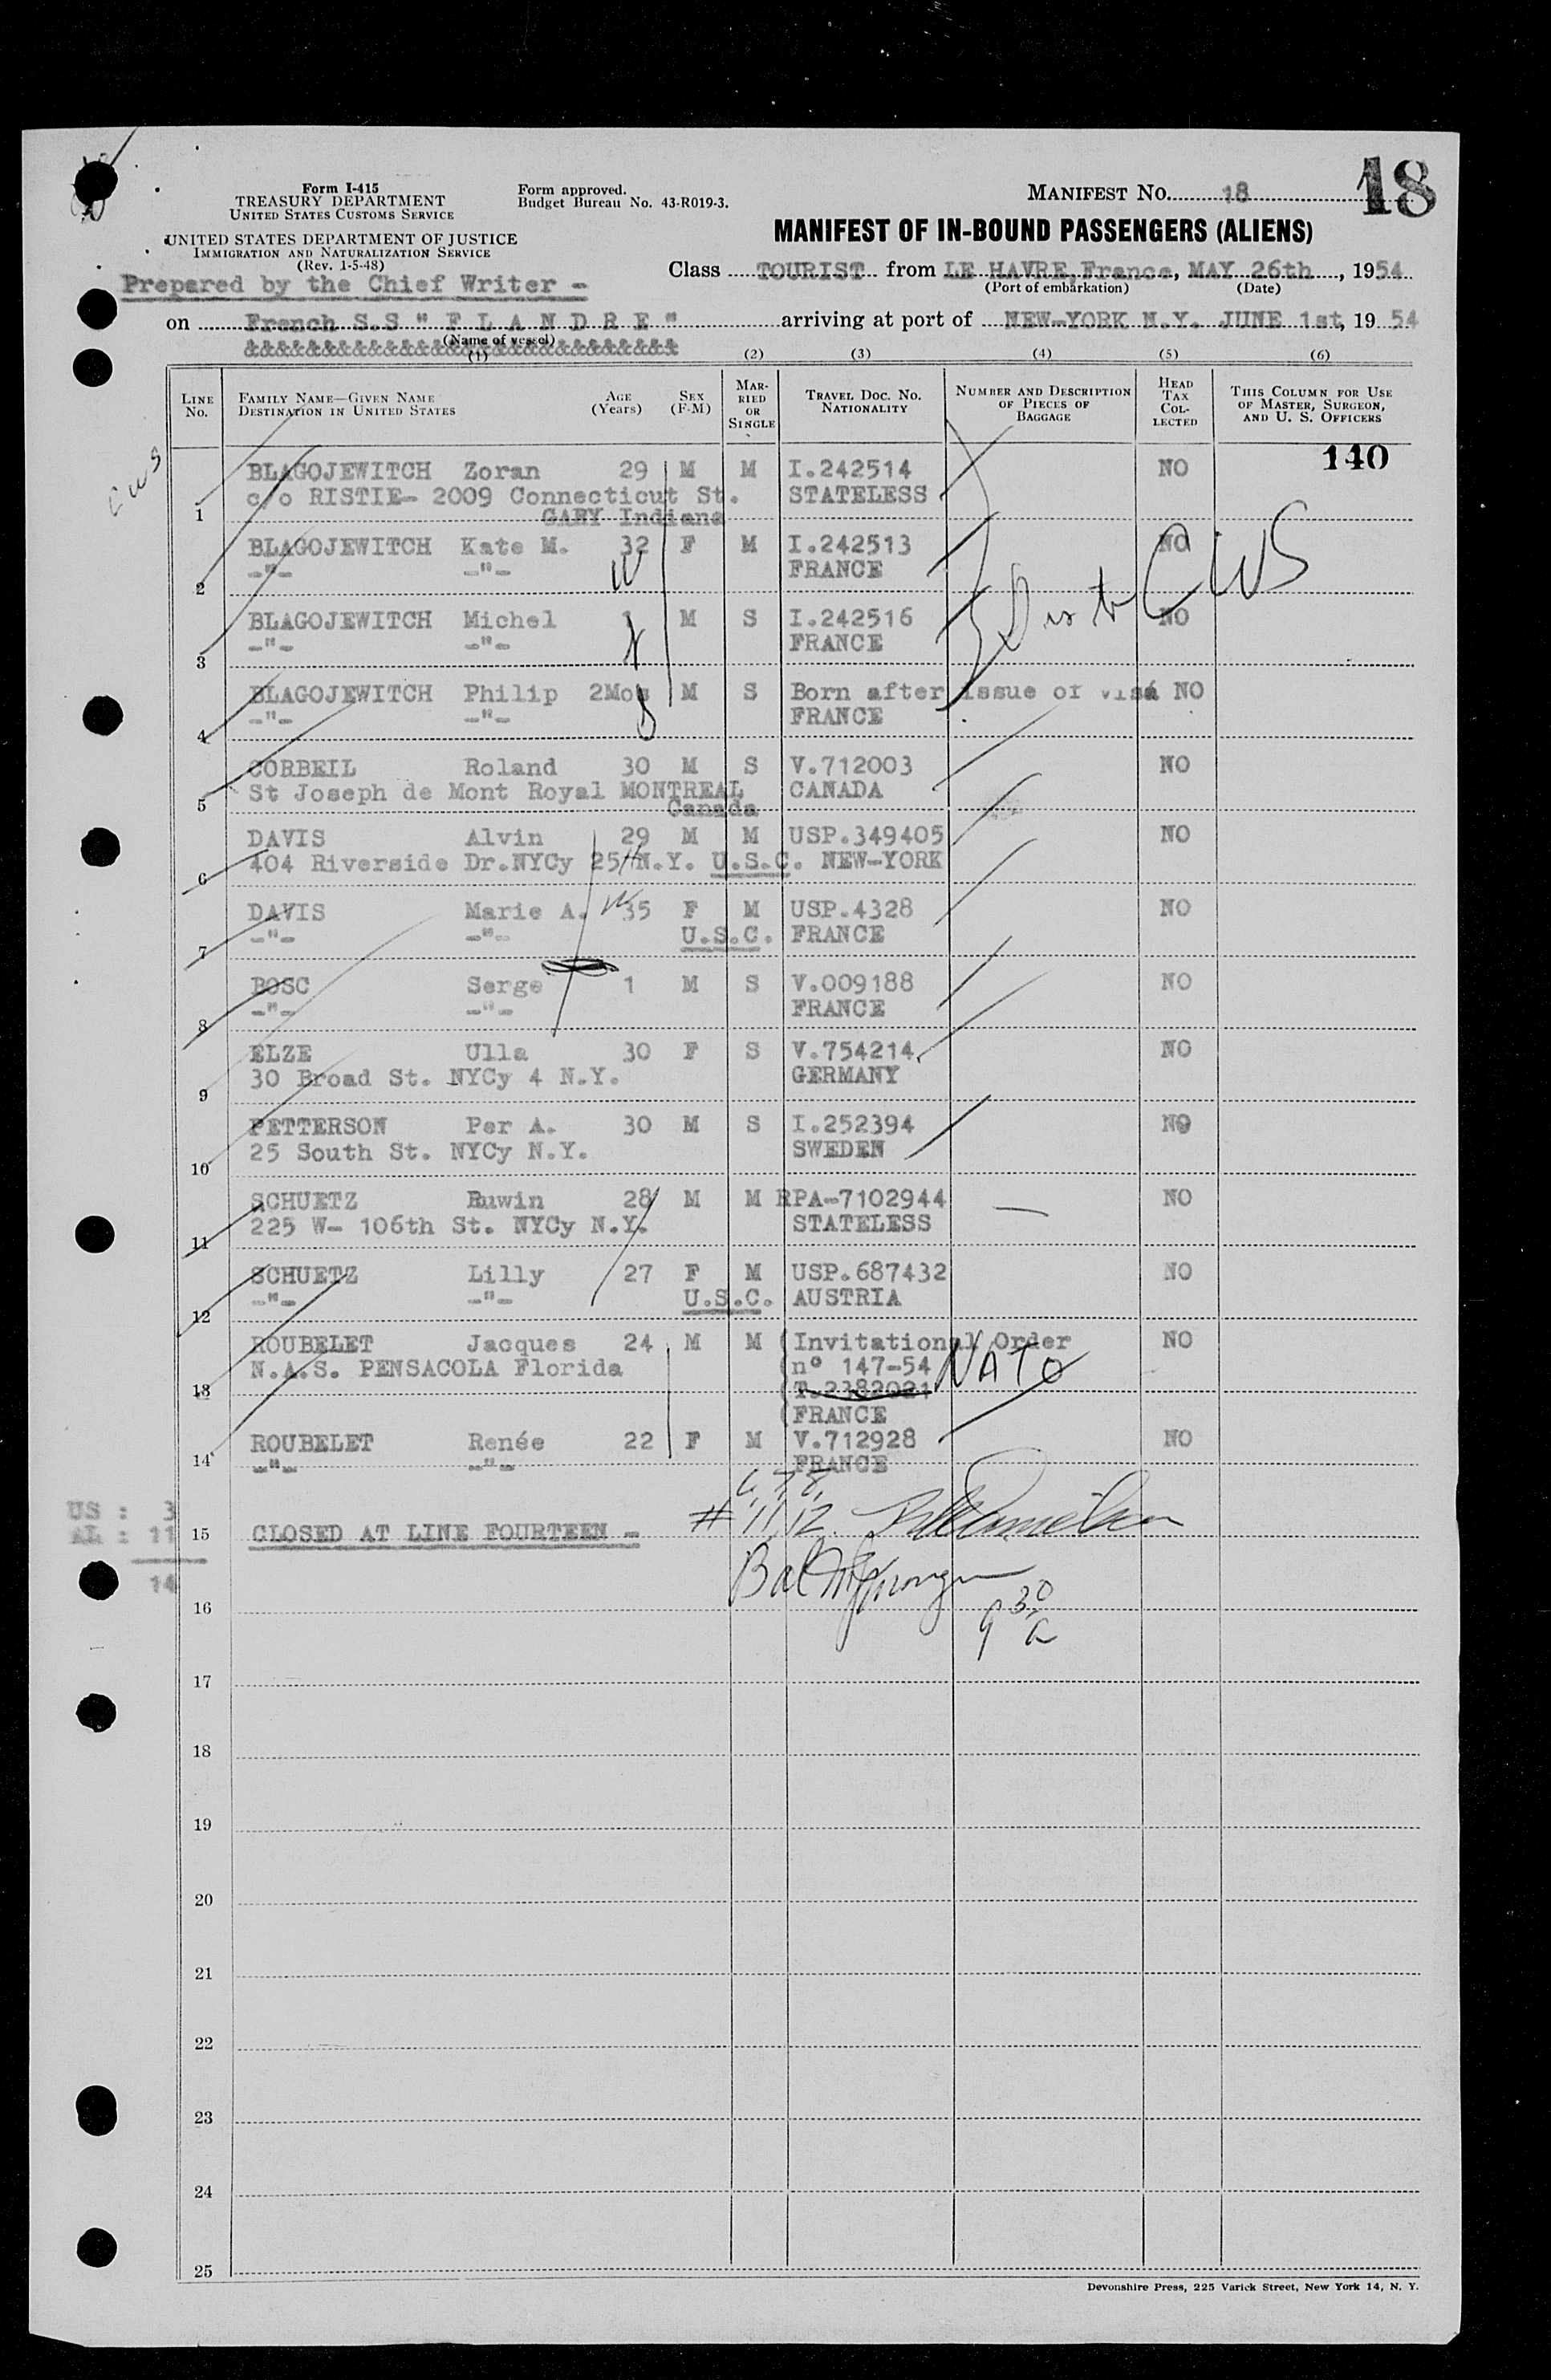 18
Form I-415
TREASURY DEPARTMENT
UNITED STATES CUSTOMS SERVICE
Form approved.
Budget Bureau No. 43-R019-3.
MANIFEST NO. 18
UNITED STATES DEPARTMENT OF JUSTICE
IMMIGRATION AND NATURALIZATION SERVICE
(Rev. 1-5-48)
MANIFEST OF IN-BOUND PASSENGERS (ALIENS)
Prepared by the Chief Writer -
Class TOURIST from LE HAVRE, France, MAY 26th, 1954
(Port of embarkation) (Date)
on French S.S " F L A N D R E " arriving at port of NEW-YORK N.Y. JUNE 1st, 19 54
(Name of vessel)
&&&&&&&&&&&&&&&&&&&&&&&&&&&&
(1) (2) (3) (4) (5) (6)
LINE No. FAMILY NAME—GIVEN NAME DESTINATION IN UNITED STATES AGE (Years) SEX (F-M) MARRIED OR SINGLE TRAVEL DOC. NO. NATIONALITY NUMBER AND DESCRIPTION OF PIECES OF BAGGAGE HEAD TAX COLLECTED THIS COLUMN FOR USE OF MASTER, SURGEON, AND U. S. OFFICERS
140
BLAGOJEWITCH Zoran 29 M M I.242514 NO
c/o RISTIE- 2009 Connecticut St. STATELESS
1 GARY Indiana
BLAGOJEWITCH Kate M. 32 F M I.242513 NO
2 -"- -"- W FRANCE
CWS
BLAGOJEWITCH Michel 1 M S I.242516 NO
3 -"- -"- FRANCE
BLAGOJEWITCH Philip 2Mos M S Born after issue of visá NO
4 -"- -"- FRANCE
CORBEIL Roland 30 M S V.712003 NO
5 St Joseph de Mont Royal MONTREAL CANADA
Canada
DAVIS Alvin 29 M M USP.349405 NO
6 404 Riverside Dr.NYCy 25 N.Y. U.S.C. NEW-YORK
DAVIS Marie A. W 35 F M USP.4328 NO
7 -"- -"- U.S.C. FRANCE
BOSC Serge 1 M S V.009188 NO
8 -"- -"- FRANCE
ELZE Ulla 30 F S V.754214 NO
9 30 Broad St. NYCy 4 N.Y. GERMANY
PETTERSON Per A. 30 M S I.252394 NO
10 25 South St. NYCy N.Y. SWEDEN
SCHUETZ Ruwin 28 M M RPA-7102944 NO
11 225 W- 106th St. NYCy N.Y. STATELESS
SCHUETZ Lilly 27 F M USP.687432 NO
12 -"- -"- U.S.C. AUSTRIA
ROUBELET Jacques 24 M M Invitational Order NO
N.A.S. PENSACOLA Florida n° 147-54 NATO
13 T.2382021
FRANCE
ROUBELET Renée 22 F M V.712928 NO
14 -"- -"- FRANCE
6, 7, 8,
US : 3
15 CLOSED AT LINE FOURTEEN - # 11, 12.
AL : 11
14
Bal
16
9 30 a
17
18
19
20
21
22
23
24
25
Devonshire Press, 225 Varick Street, New York 14, N. Y.